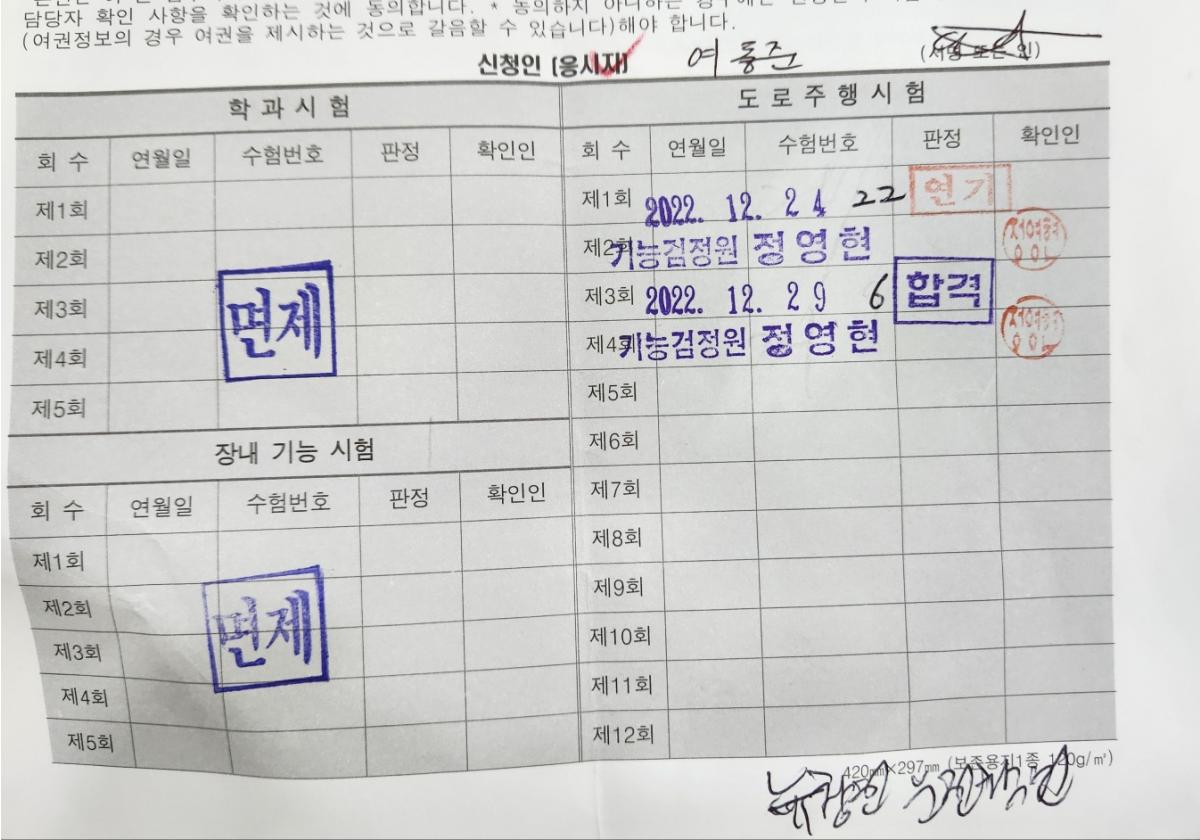 담당자 확인 사항을 확인하는 것에 동의합니다. * 동의하지 아니하는
(여권정보의 경우 여권을 제시하는 것으로 갈음할 수 있습니다)해야 합니다.
신청인 [응시자] 여동준 (서명 또는 인)
학 과 시 험
회 수 연월일 수험번호 판정 확인인
제1회
제2회
제3회
제4회
제5회
면제
장내 기능 시험
회 수 연월일 수험번호 판정 확인인
제1회
제2회
제3회
제4회
제5회
면제
도 로 주 행 시 험
회 수 연월일 수험번호 판정 확인인
제1회 2022. 12. 24 22 연기
제2회 기능검정원 정영현
제3회 2022. 12. 29 6 합격
제4회 기능검정원 정영현
제5회
제6회
제7회
제8회
제9회
제10회
제11회
제12회
420㎜×297㎜ (보존용지1종 120g/㎡)